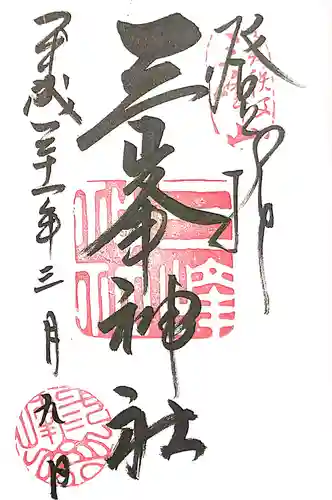 登拝
三峯神社
平成三十一年三月九日